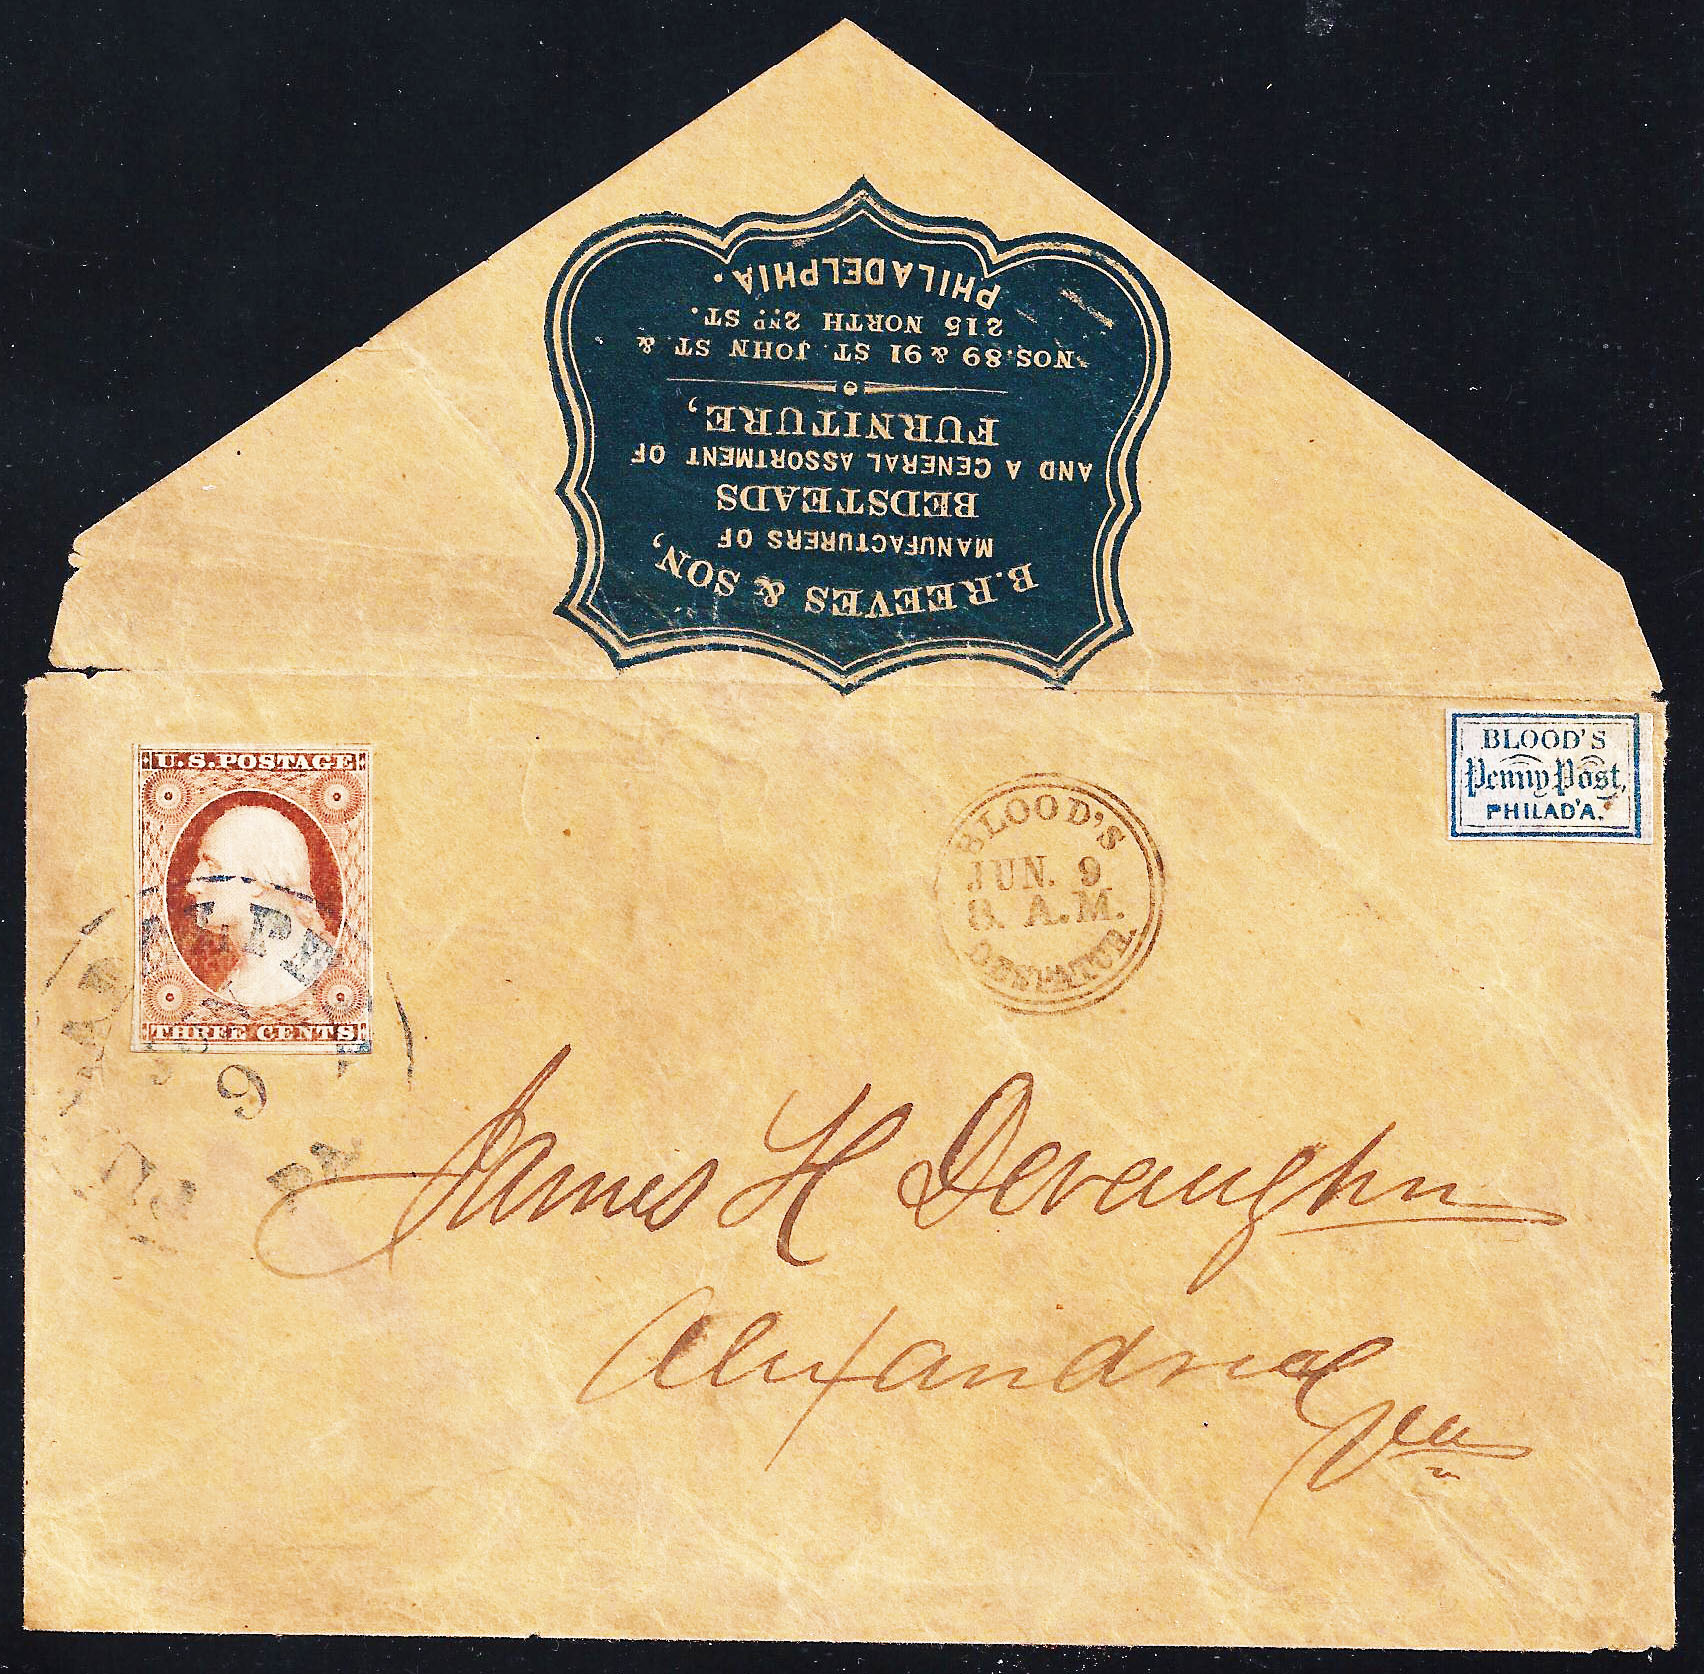 B. REEVES & SON,
MANUFACTURERS OF
BEDSTEADS
AND A GENERAL ASSORTMENT OF
FURNITURE,
NOS. 89 & 91 ST. JOHN ST. &
215 NORTH 2ND ST.
PHILADELPHIA.
U.S. POSTAGE
THREE CENTS
BLOOD'S
JUN. 9
8. A.M.
DESPATCH.
BLOOD'S
Penny Post,
PHILAD'A.
9
PA
James H Devaughn
Alexandria
Va